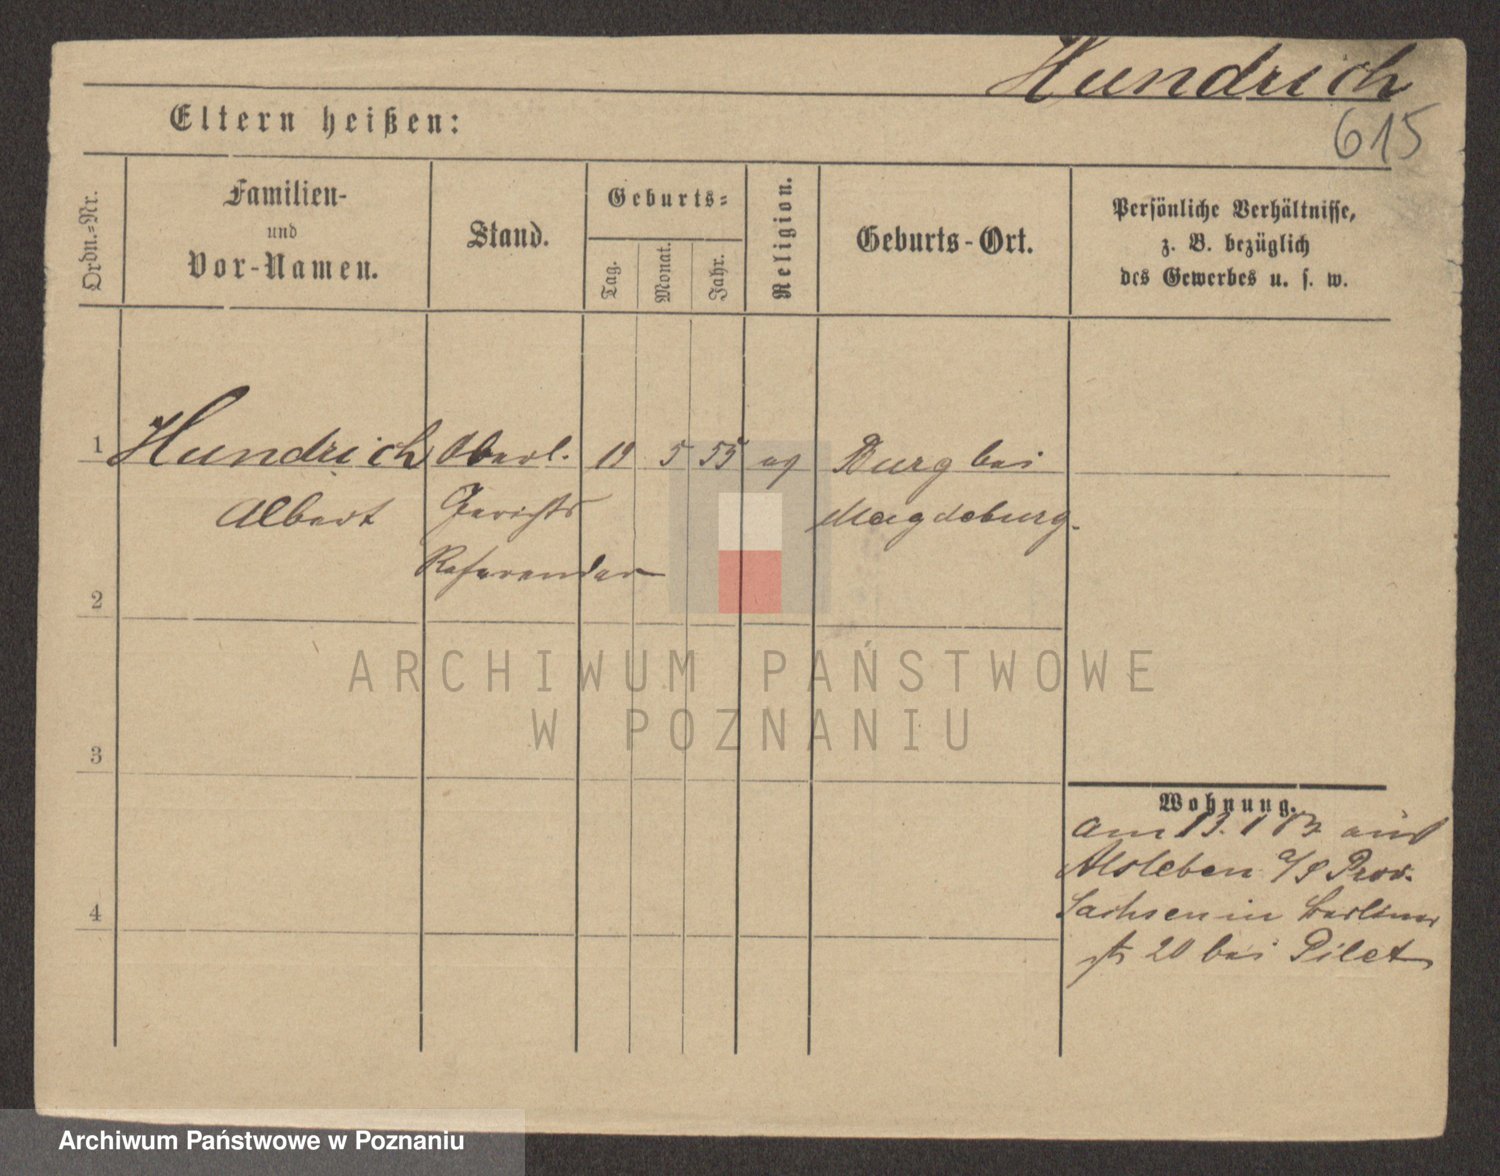 Hundrich
615
Eltern heißen:
Ordn.-Nr.
Familien-
und
Vor-Namen.
Stand.
Geburts-
Tag.
Monat.
Jahr.
Religion.
Geburts-Ort.
Persönliche Verhältnisse,
z. B. bezüglich
des Gewerbes u. s. w.
1
Hundrich Oberl. 19 5 55 ev Burg bei
Albert Gerichts Magdeburg.
Referendar
2
ARCHIWUM PAŃSTWOWE
W POZNANIU
3
Wohnung.
am 13. 1 83 aus
Alsleben a/S Prov.
Sachsen in Berliner
str 20 bei Pilet
4
Archiwum Państwowe w Poznaniu